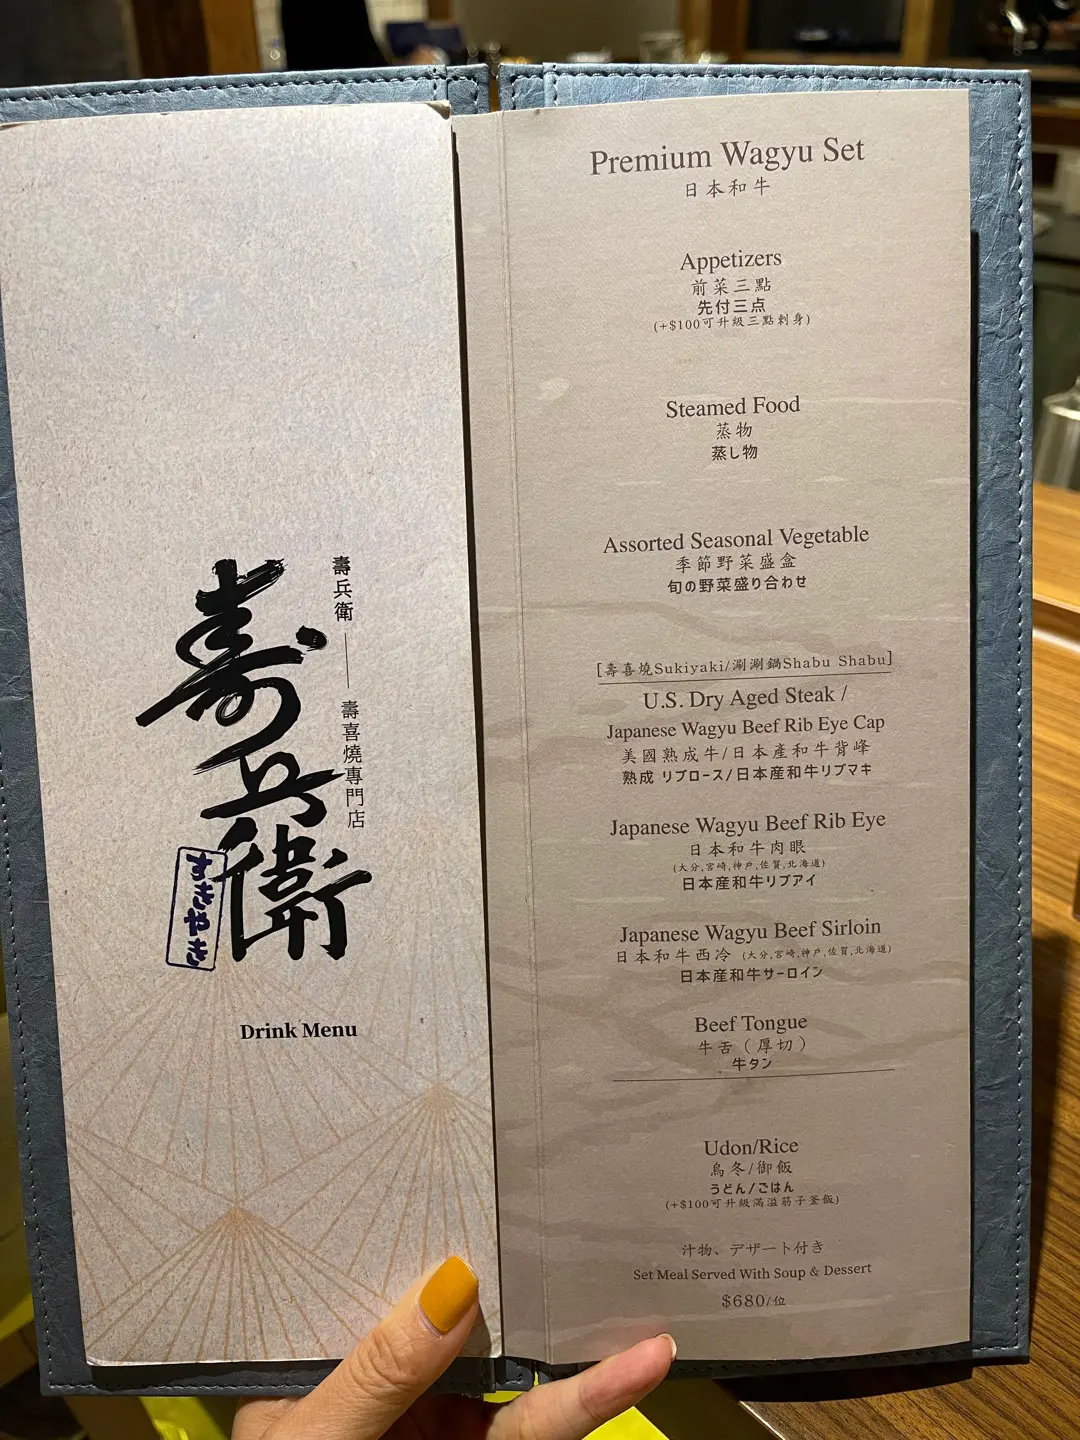 壽兵衛
壽兵衛——壽喜燒專門店
すきやき
Drink Menu
Premium Wagyu Set
日本和牛
Appetizers
前菜三點
先付三点
(+$100可升級三點刺身)
Steamed Food
蒸物
蒸し物
Assorted Seasonal Vegetable
季節野菜盛盒
旬の野菜盛り合わせ
[壽喜燒Sukiyaki/涮涮鍋Shabu Shabu]
U.S. Dry Aged Steak /
Japanese Wagyu Beef Rib Eye Cap
美國熟成牛/日本產和牛背峰
熟成 リブロース/日本産和牛リブマキ
Japanese Wagyu Beef Rib Eye
日本和牛肉眼
(大分,宮崎,神戶,佐賀,北海道)
日本産和牛リブアイ
Japanese Wagyu Beef Sirloin
日本和牛西冷 (大分,宮崎,神戶,佐賀,北海道)
日本産和牛サーロイン
Beef Tongue
牛舌（厚切）
牛タン
Udon/Rice
烏冬/御飯
うどん/ごはん
(+$100可升級滿溢筋子釜飯)
汁物、デザート付き
Set Meal Served With Soup & Dessert
$680/位